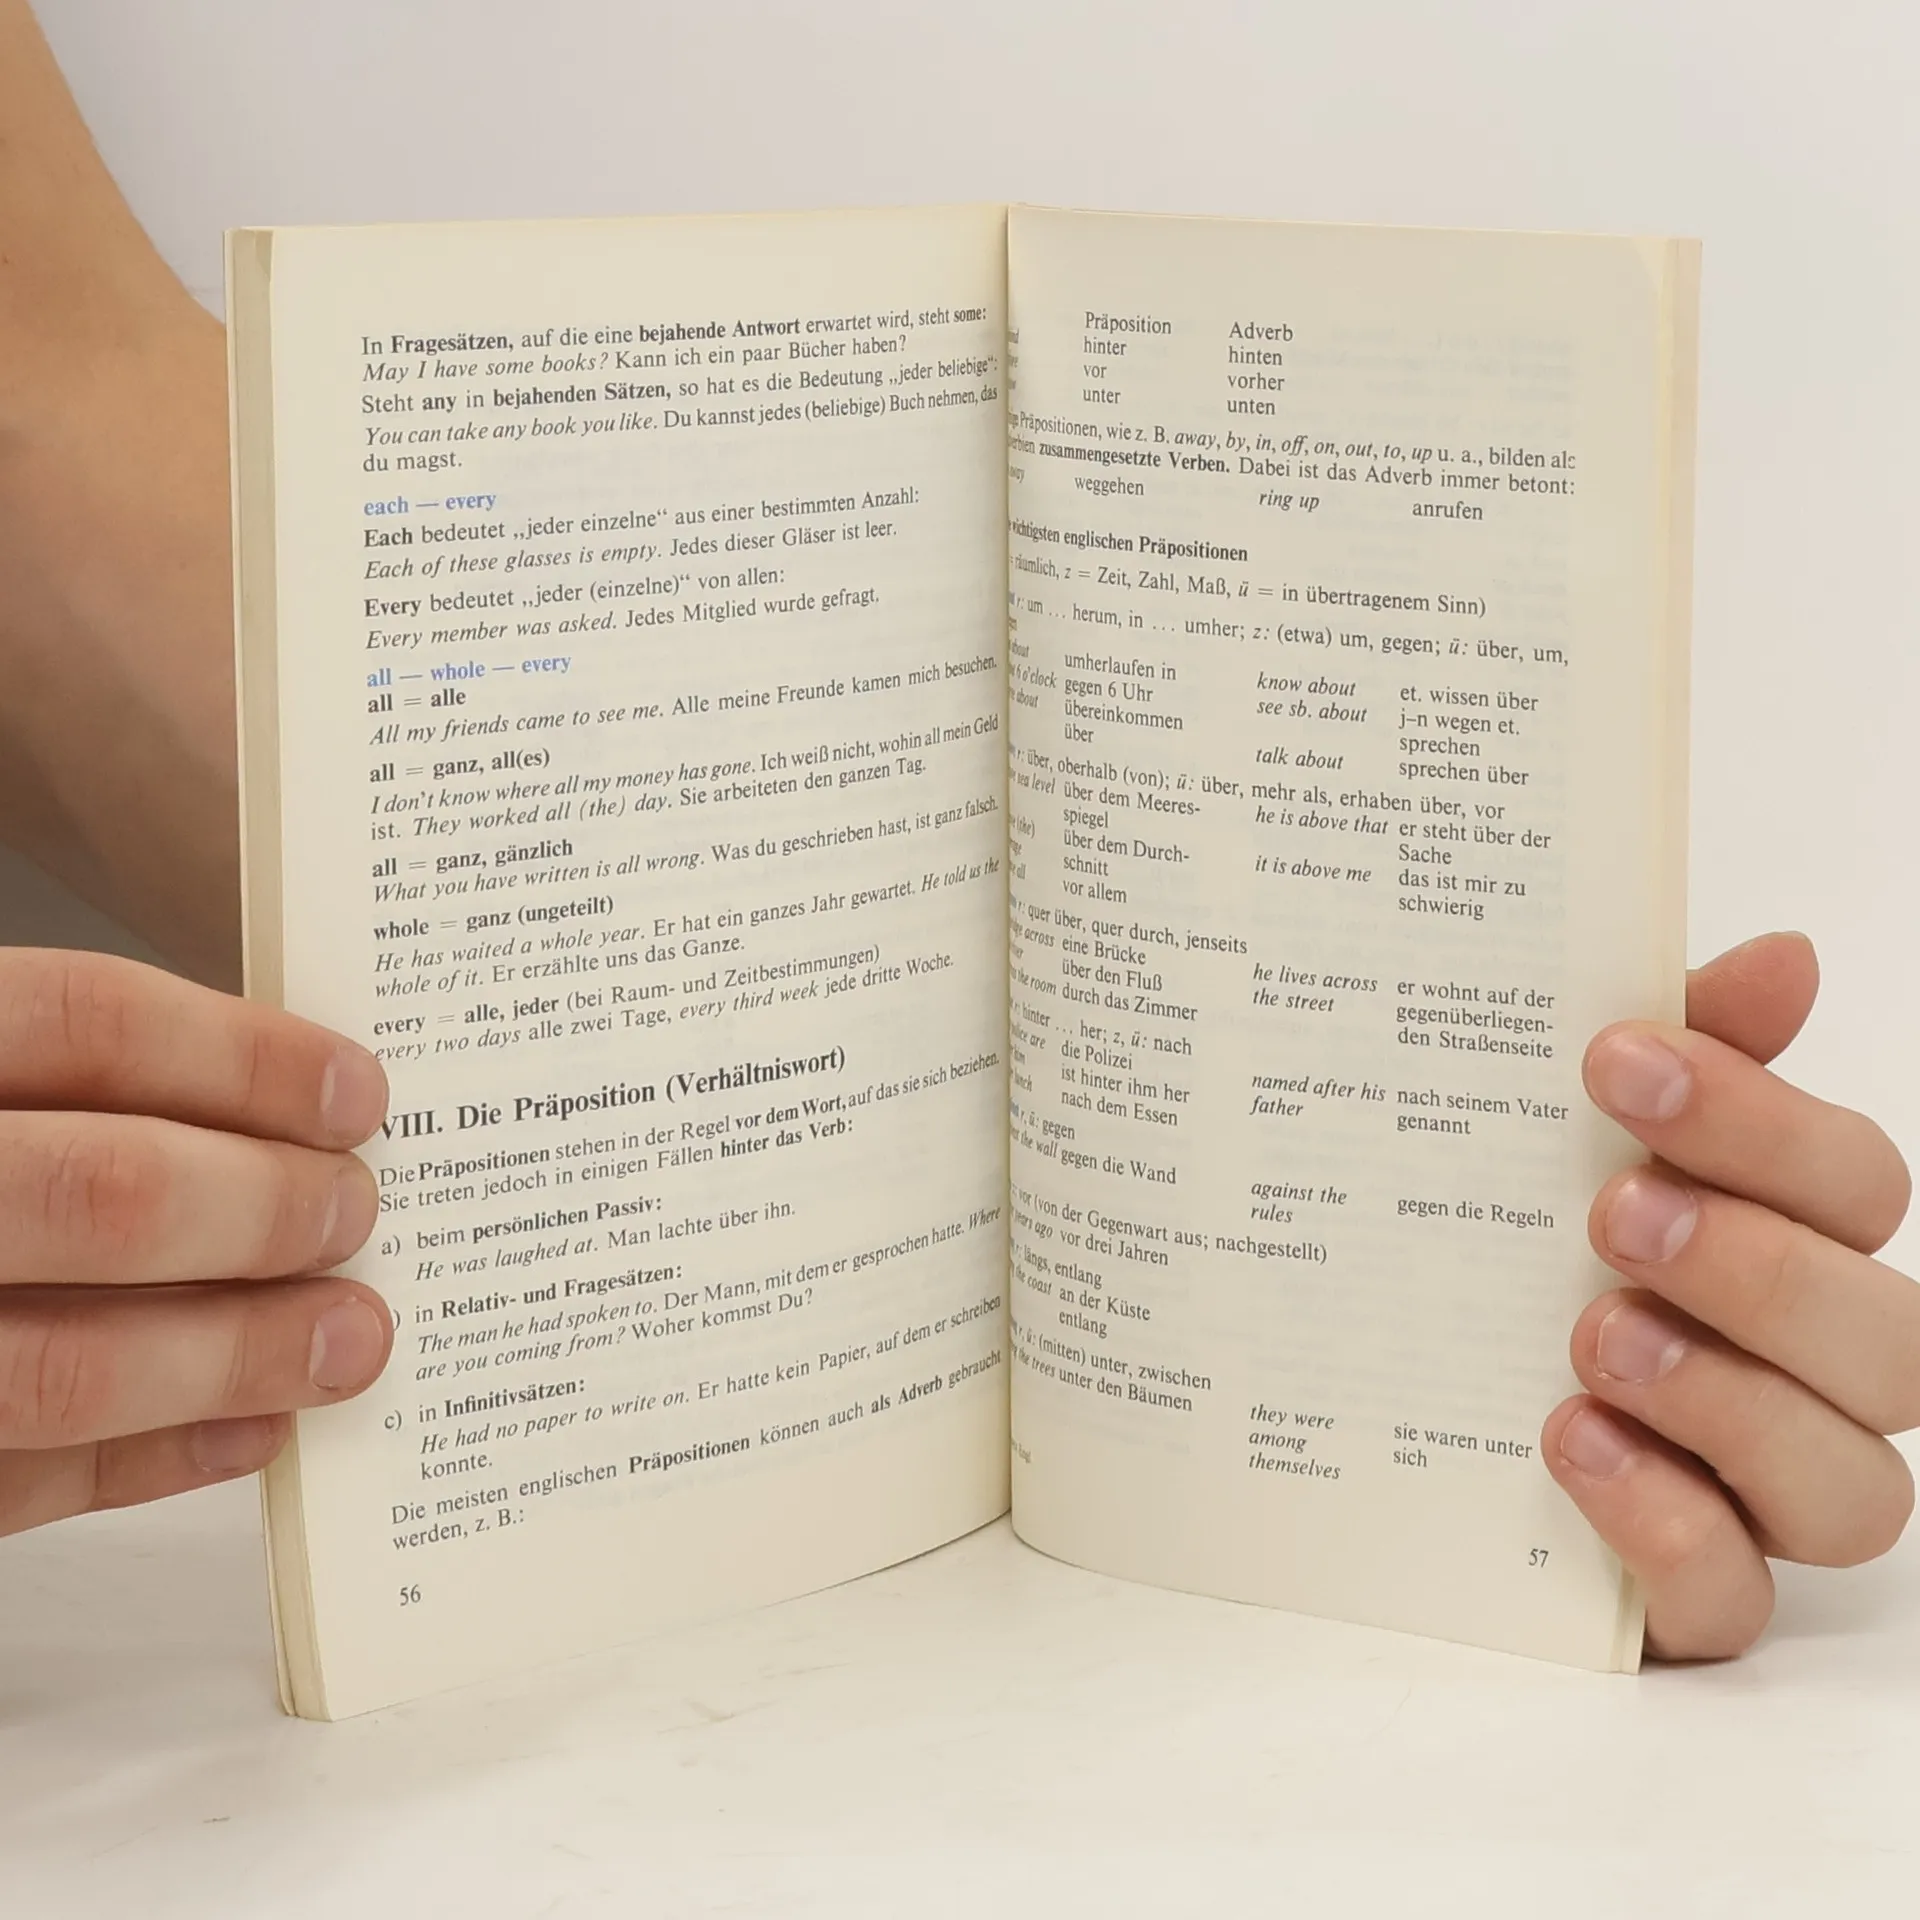 In Fragesätzen, auf die eine bejahende Antwort erwartet wird, steht some:
May I have some books? Kann ich ein paar Bücher haben?
Steht any in bejahenden Sätzen, so hat es die Bedeutung „jeder beliebige“:
You can take any book you like. Du kannst jedes (beliebige) Buch nehmen, das
du magst.
each — every
Each bedeutet „jeder einzelne“ aus einer bestimmten Anzahl:
Each of these glasses is empty. Jedes dieser Gläser ist leer.
Every bedeutet „jeder (einzelne)“ von allen:
Every member was asked. Jedes Mitglied wurde gefragt.
all — whole — every
all = alle
All my friends came to see me. Alle meine Freunde kamen mich besuchen.
all = ganz, all(es)
I don't know where all my money has gone. Ich weiß nicht, wohin all mein Geld
ist. They worked all (the) day. Sie arbeiteten den ganzen Tag.
all = ganz, gänzlich
What you have written is all wrong. Was du geschrieben hast, ist ganz falsch.
whole = ganz (ungeteilt)
He has waited a whole year. Er hat ein ganzes Jahr gewartet. He told us the
whole of it. Er erzählte uns das Ganze.
every = alle, jeder (bei Raum- und Zeitbestimmungen)
every two days alle zwei Tage, every third week jede dritte Woche.
VIII. Die Präposition (Verhältniswort)
Die Präpositionen stehen in der Regel vor dem Wort, auf das sie sich beziehen.
Sie treten jedoch in einigen Fällen hinter das Verb:
a) beim persönlichen Passiv:
He was laughed at. Man lachte über ihn.
) in Relativ- und Fragesätzen:
The man he had spoken to. Der Mann, mit dem er gesprochen hatte. Where
are you coming from? Woher kommst Du?
c) in Infinitivsätzen:
He had no paper to write on. Er hatte kein Papier, auf dem er schreiben
konnte.
Die meisten englischen Präpositionen können auch als Adverb gebraucht
werden, z. B.:
56
Präposition Adverb
hinter hinten
vor vorher
unter unten
Präpositionen, wie z. B. away, by, in, off, on, out, to, up u. a., bilden als
zusammengesetzte Verben. Dabei ist das Adverb immer betont:
weggehen ring up anrufen
wichtigsten englischen Präpositionen
räumlich, z = Zeit, Zahl, Maß, ü = in übertragenem Sinn)
r: um ... herum, in ... umher; z: (etwa) um, gegen; ü: über, um,
about umherlaufen in know about et. wissen über
6 o'clock gegen 6 Uhr see sb. about j-n wegen et.
about übereinkommen sprechen
über talk about sprechen über
r: über, oberhalb (von); ü: über, mehr als, erhaben über, vor
sea level über dem Meeres- he is above that er steht über der
spiegel Sache
(the) über dem Durch- it is above me das ist mir zu
schnitt schwierig
all vor allem
r: quer über, quer durch, jenseits
across eine Brücke he lives across er wohnt auf der
über den Fluß the street gegenüberliegen-
the room durch das Zimmer den Straßenseite
r: hinter ... her; z, ü: nach
are die Polizei named after his nach seinem Vater
him ist hinter ihm her father genannt
lunch nach dem Essen
r, ü: gegen
the wall gegen die Wand against the gegen die Regeln
rules
vor (von der Gegenwart aus; nachgestellt)
years ago vor drei Jahren
r: längs, entlang
the coast an der Küste
entlang
r, ü: (mitten) unter, zwischen
the trees unter den Bäumen they were sie waren unter
among sich
themselves
57